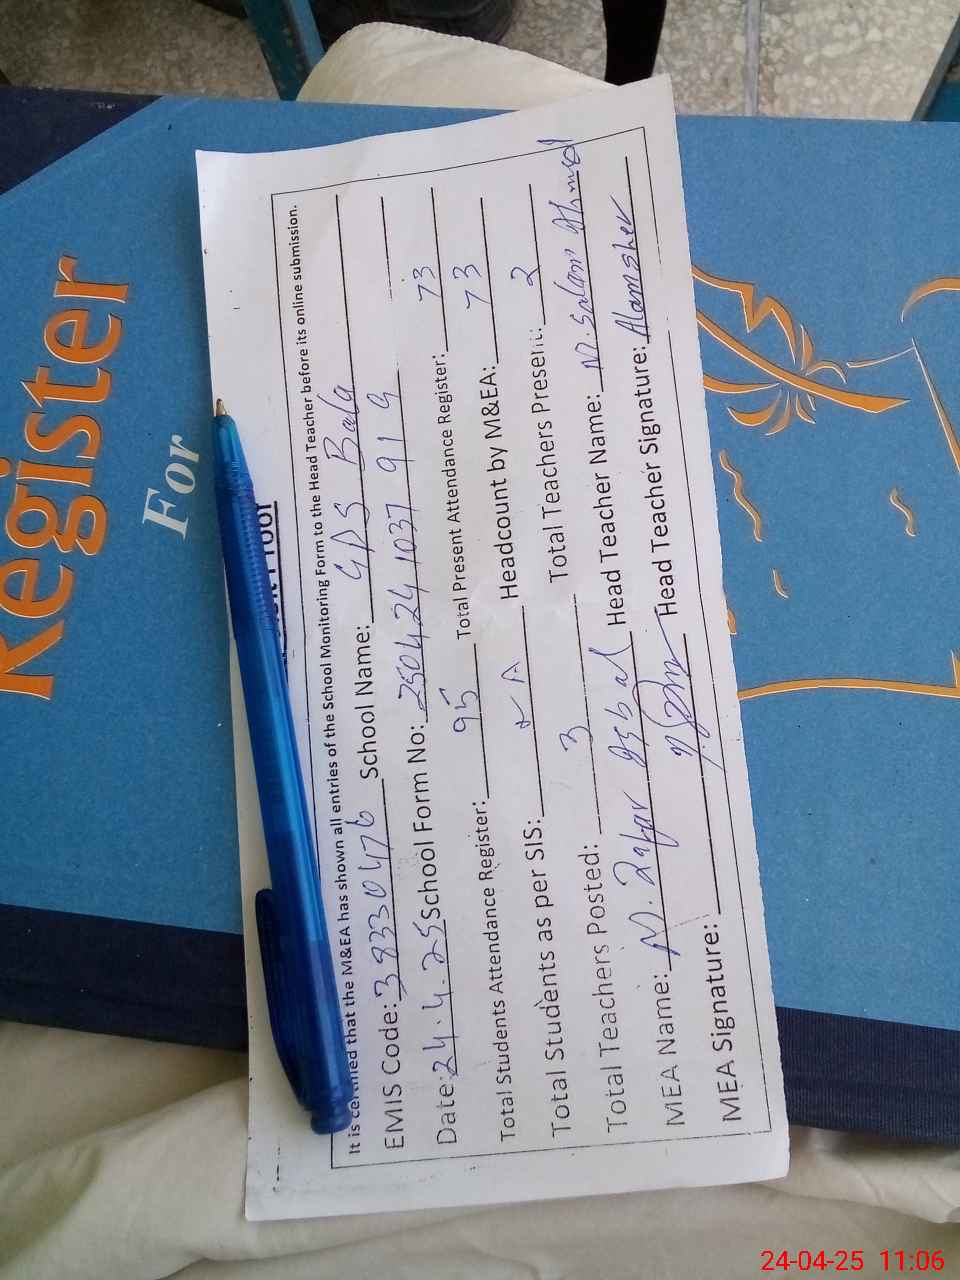 Register
For
It is certified that the M&EA has shown all entries of the School Monitoring Form to the Head Teacher before its online submission.
EMIS Code: 38330476 School Name: GPS Bala
Date: 24.4.25 School Form No: 250424 1037 919
Total Students Attendance Register: 95 Total Present Attendance Register: 73
Total Students as per SIS: Headcount by M&EA: 73
Total Teachers Posted: 3 Total Teachers Present: 2
MEA Name: M. Zafar Iqbal Head Teacher Name: M. Salam Ahmed
MEA Signature: Head Teacher Signature: Alamsher
24-04-25 11:06